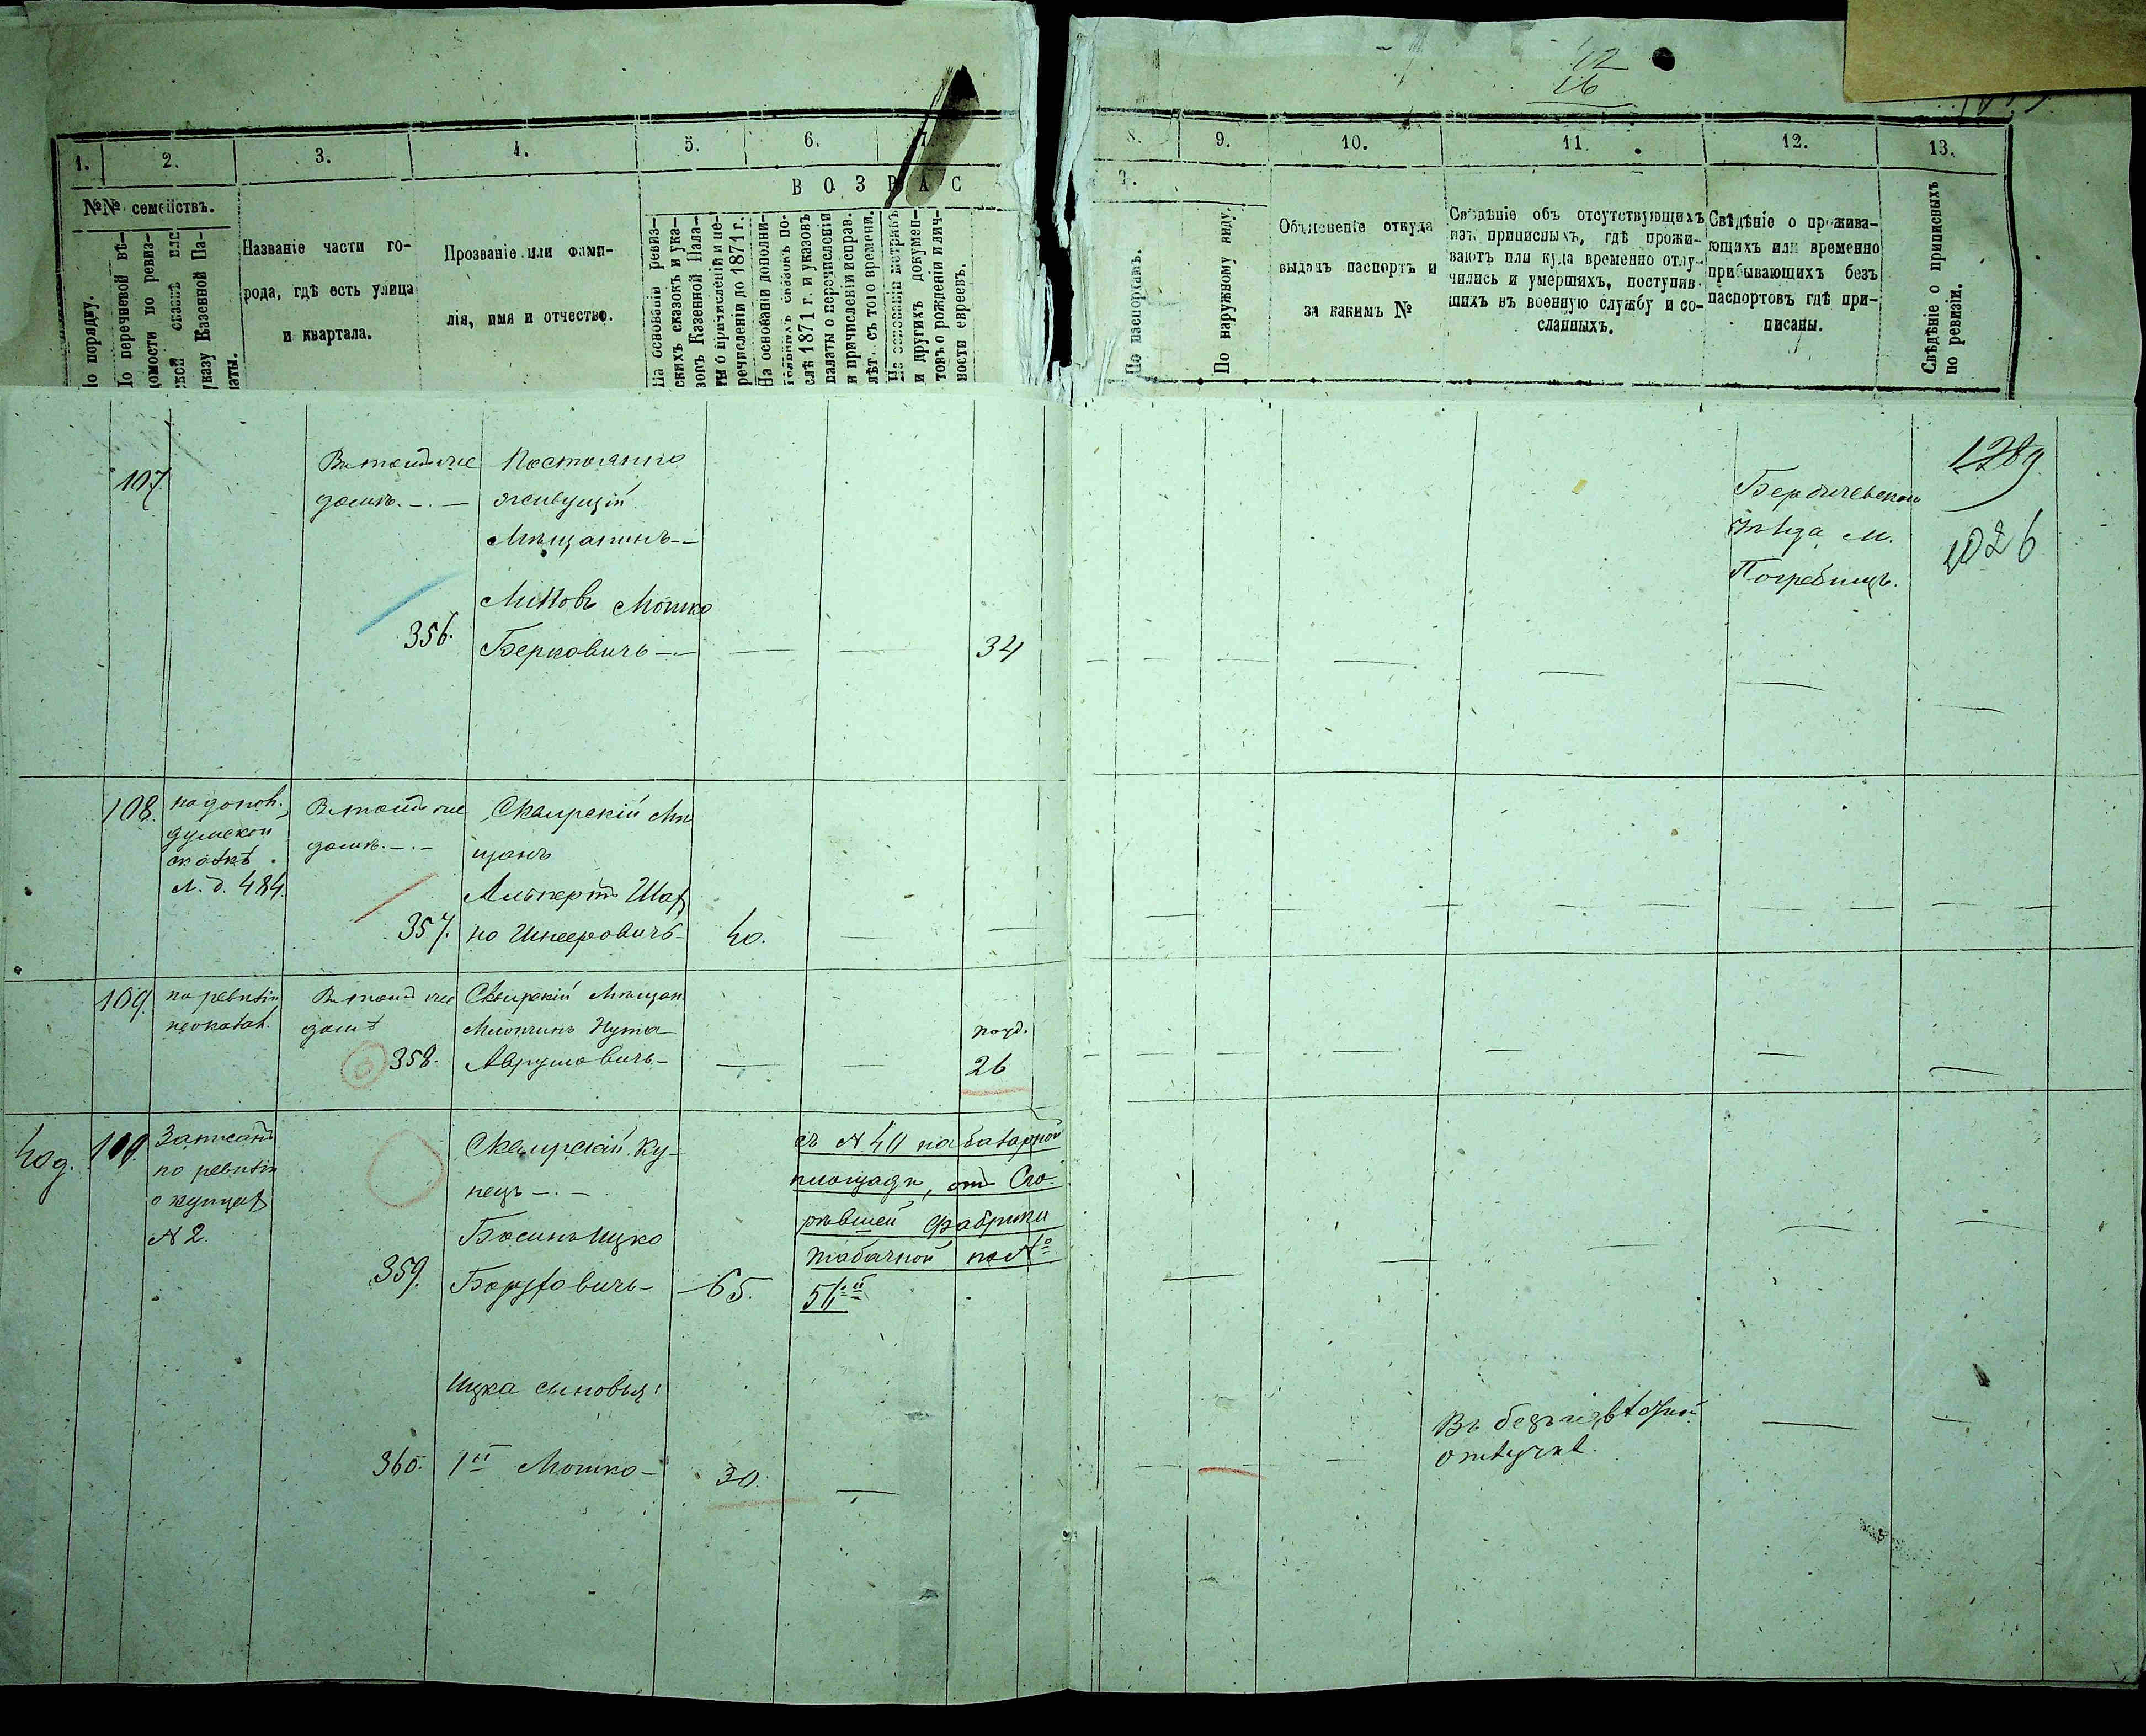 12
16
1.
2.
3.
4.
5.
6.
7.
№№ семействъ.
В О З Р А С
По порядку.
По перечневой вѣ-
домости по ревиз-
ской сказкѣ или
указу Казенной Па-
латы.
Названіе части го-
рода, гдѣ есть улица
и квартала.
Прозваніе или фами-
лія, имя и отчество.
На основаніи ревиз-
скихъ сказокъ и ука-
зовъ Казенной Пала-
ты о причисленіи и пе-
речисленіи до 1871 г.
На основаніи дополни-
тельныхъ сказокъ по-
слѣ 1871 г. и указовъ
палаты о перечисленіи
и причисленіи исправ.
лѣт. съ того времени.
На основаніи метрикъ
и другихъ докумен-
товъ о рожденіи и лич-
ности евреевъ.
8.
9.
10.
11.
12.
13.
Т.
По паспортамъ.
По наружному виду.
Объясненіе откуда
выданъ паспортъ и
за какимъ №
Свѣдѣніе объ отсутствующихъ
изъ приписныхъ, гдѣ прожи-
ваютъ или куда временно отлу-
чились и умершихъ, поступив-
шихъ въ военную службу и со-
сланныхъ.
Свѣдѣніе о прожива-
ющихъ или временно
прибывающихъ безъ
паспортовъ гдѣ при-
писаны.
Свѣдѣніе о приписныхъ
по ревизіи.
107.
Въ томъ же
домѣ. – . –
Постоянно
живущій
Мѣщанинъ –
356.
Мошко
Берковичъ – . –
34
Бердичевскаго
уѣзда м.
Погребищъ.
1289
1026
108.
по допол.
думской
сказкѣ
л. д. 484.
Въ томъ же
домѣ. – . –
Сквирскій Мѣ
щанъ
Альпертъ Шах
357.
но Шнееровичъ –
40.
109.
по ревизіи
не показан.
Въ томъ же
домѣ
Сквирскій Мѣщан.
Нута
358.
Аврумовичъ –
26
110.
Записанъ
по ревизіи
о купцах
№ 2.
Сквирскій Ку-
пецъ – . –
Босинъ Ицко
359.
Боруховичъ –
65.
съ № 40 на базарной
площади, отъ Сго-
рѣвшей фабрики
табачной по №
Ицка сыновья:
360.
1й Мошко –
30.
Въ безъизвѣстной
отлучкѣ.